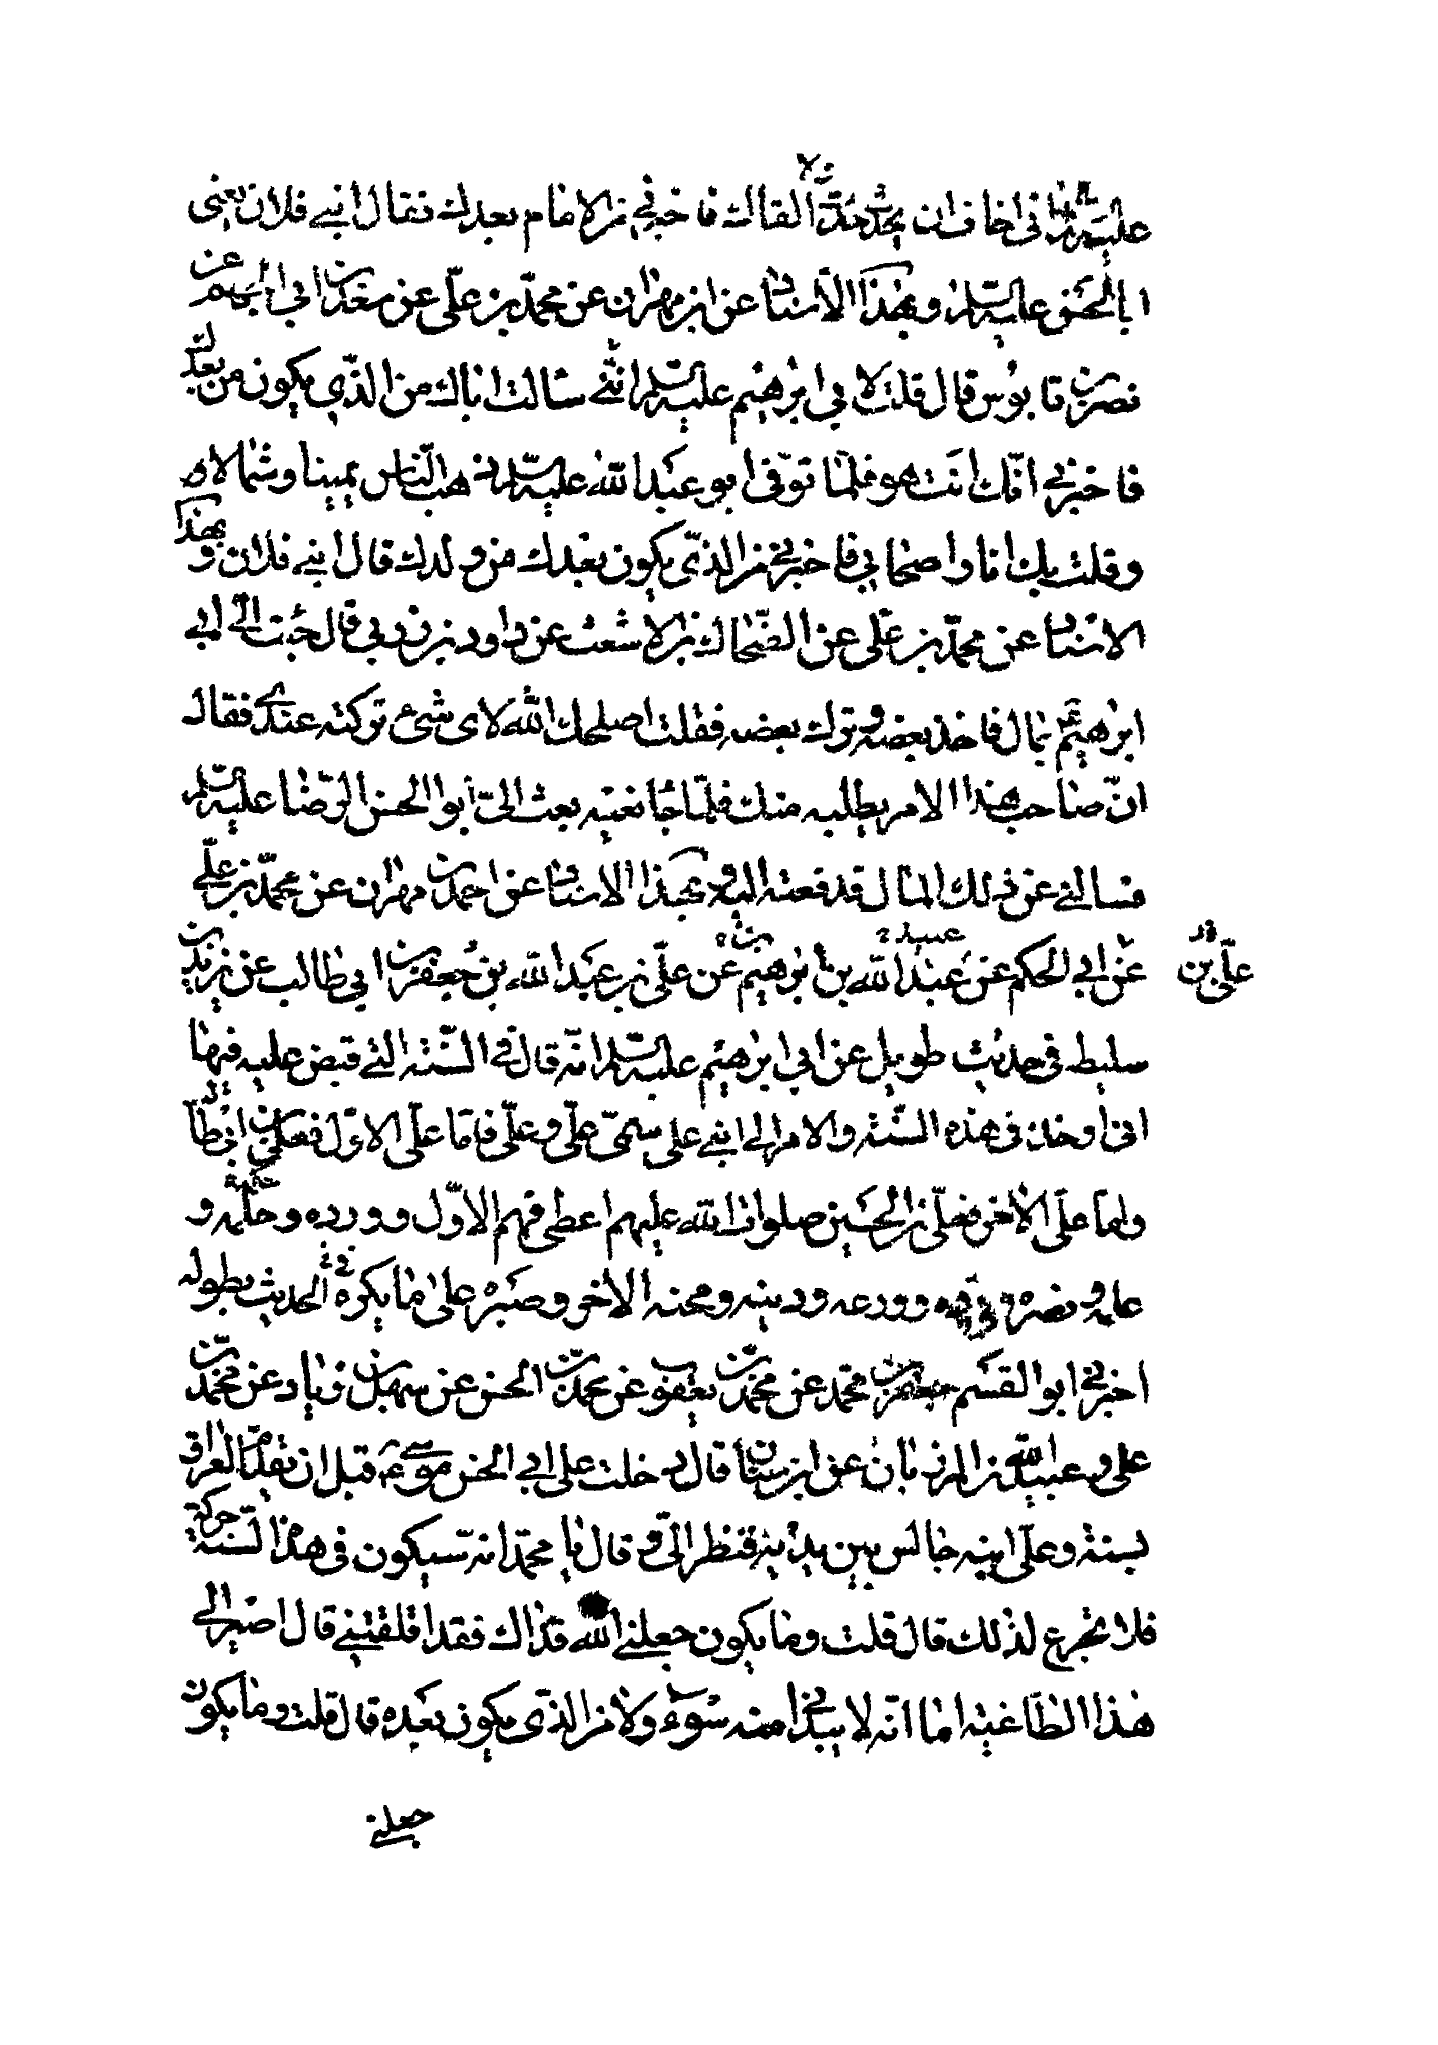 عليه السلم انى اخاف ان يحدث حدث ولا القاك فاخبرنى من الامام بعدك فقال ابنى فلان يعنى
ابا الحسن عليه السلم وبهذا الاسناد عن ابن مهران عن محمد بن على عن سعيد بن ابى الجهم عن
نصر بن قابوس قال قلت لابى ابرهيم عليه السلم انّنى سالت اباك من الذى يكون من بعدك
فاخبرنى انّك انت هو فلمّا توفى ابو عبد الله عليه السلم ذهب النّاس يمينا وشمالا
وقلت بك انا واصحابى فاخبرنى من الذى يكون بعدك من ولدك قال ابنى فلان وبهذا
الاسناد عن محمّد بن على عن الضّحاك بن الاشعث عن داود بن زربى قال جئت الى ابى
ابرهيم بمال فاخذ بعضه وترك بعضه فقلت اصلحك الله لاى شىء تركته عندى فقال
انّ صاحب هذا الامر يطلبه منك فلمّا جا نعيه بعث الىّ ابو الحسن الرّضا عليه السلم
فسالنى عن ذلك المال فدفعته اليه وبهذا الاسناد عن احمد بن مهران عن محمّد بن على
عن ابى الحكم عن عبد الله بن ابرهيم عن علّى بن عبد الله بن جعفر بن ابى طالب عن يزيد بن
علّى بن
سليط فى حديث طويل عن ابى ابرهيم عليه السلم انّه قال فى السّنة التى قبض عليه فيها
انى اوخذ فى هذه السّنة والامر الى ابنى على سمىّ علّى وعلّى فامّا علّى الاوّل فعلى بن ابى طالب
وامّا علّى الآخر فعلّى بن الحسين صلوات الله عليهم اعطى فهم الاوّل و ورده وحلمه و
علمه ونصره و وورعه ودينه ومحنه الآخر وصبره على ما يكره فى الحديث بطوله
اخبرنى ابو القسم جعفر بن محمّد عن محمّد بن يعقوب عن محمّد بن الحسن عن سهل بن زياد عن محمّد بن
على وعبيد الله بن المرزبان عن ابن سنان قال دخلت على ابى الحسن موسى من قبل ان تقدم العراق
بسنة وعلّى ابنه جالس بين يديه فنظر الىّ وقال يا محمّد انه سيكون فى هذا السّنة حركة
فلا تجزع لذلك قال قلت وما يكون جعلنى الله فداك فقد اقلقتنى قال اصير الى
هذا الطّاغية اما انّه لا يبدانى منه سوء ولا من الذى يكون بعده قال قلت وما يكون
جعلنى